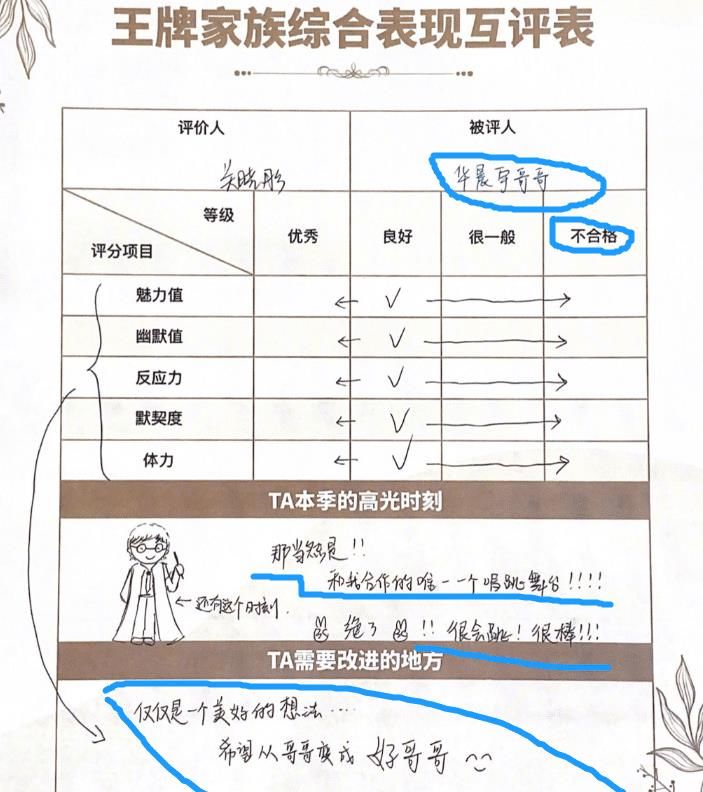 王牌家族综合表现互评表
评价人
被评人
关晓彤
华晨宇哥哥
等级
评分项目
优秀
良好
很一般
不合格
魅力值
幽默值
反应力
默契度
体力
TA本季的高光时刻
那当然是!!
和我合作的唯一一个唱跳舞台!!!!
还有这个时刻.
绝了 !! 很会跳! 很棒!!!
TA需要改进的地方
仅仅是一个美好的想法……
希望从哥哥变成 好哥哥